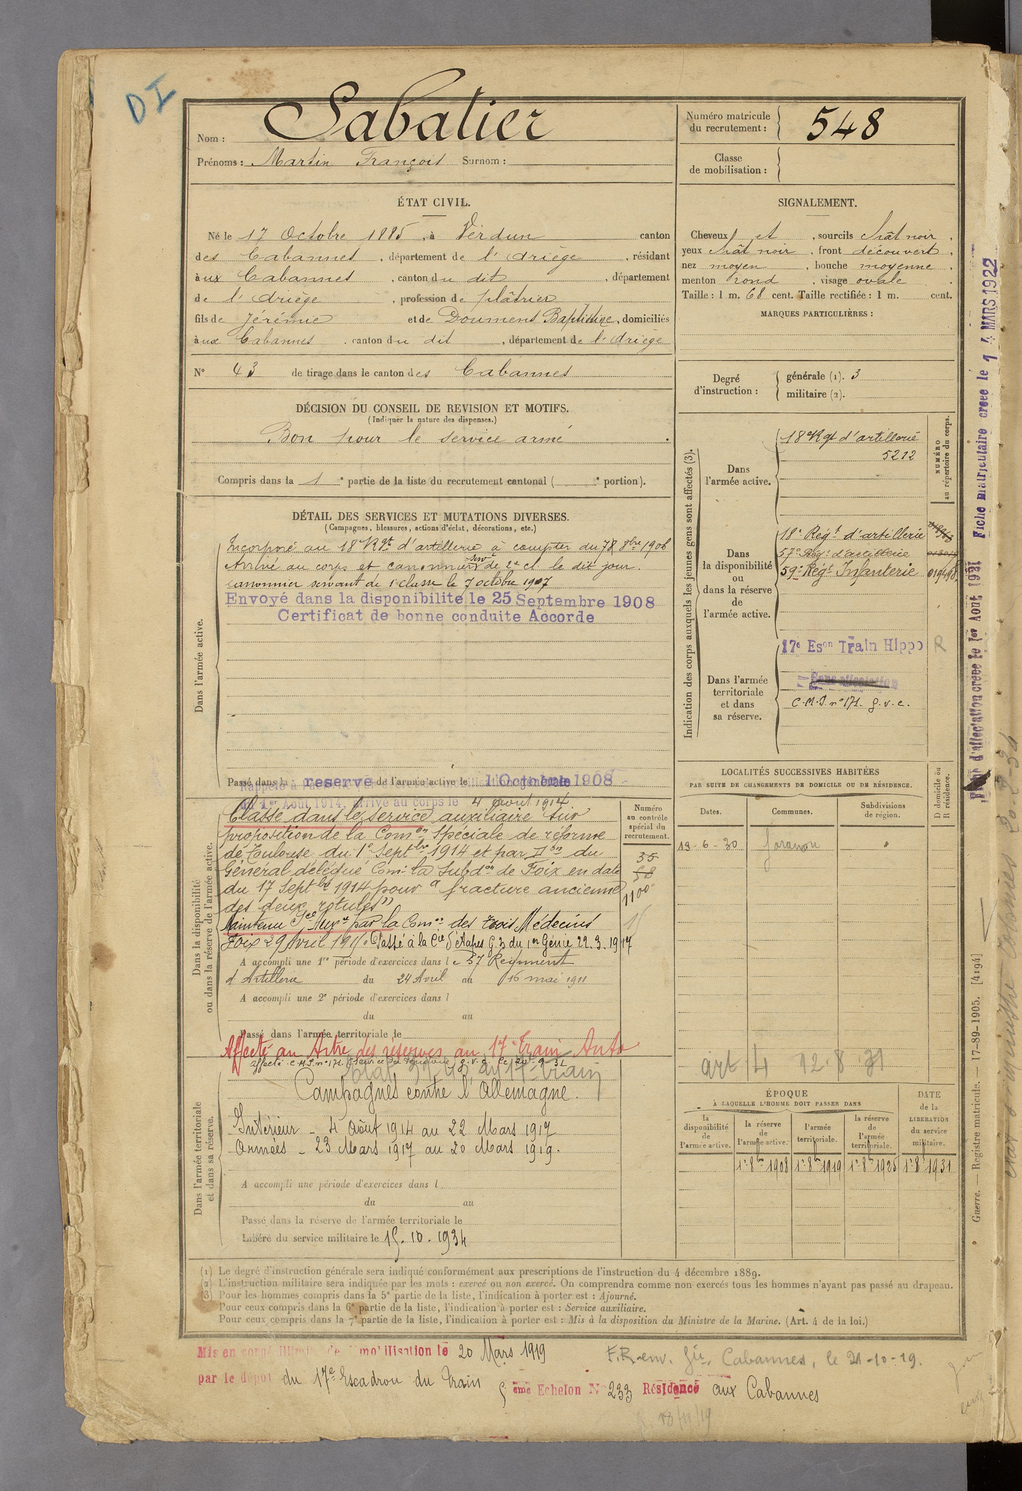 DI
Nom : Sabatier
Prénoms : Martin François Surnom :
Numéro matricule du recrutement : 548
Classe de mobilisation :
ÉTAT CIVIL.
Né le 17 Octobre 1885, à Verdun canton
des Cabannes, département de l'Ariège, résidant
aux Cabannes, canton du dit, département
de l'Ariège, profession de plâtrier
fils de Jérémie et de Doumenc Baptistine, domiciliés
aux Cabannes, canton du dit, département de l'Ariège
N° 43 de tirage dans le canton des Cabannes
SIGNALEMENT.
Cheveux et sourcils chât noir
yeux chât noir, front découvert
nez moyen, bouche moyenne
menton rond, visage ovale
Taille : 1 m. 68 cent. Taille rectifiée : 1 m. cent.
MARQUES PARTICULIÈRES :
Degré d'instruction : générale (1). 3
militaire (2).
DÉCISION DU CONSEIL DE REVISION ET MOTIFS.
(Indiquer la nature des dispenses.)
Bon pour le service armé
Compris dans la 1e partie de la liste du recrutement cantonal ( e portion).
DÉTAIL DES SERVICES ET MUTATIONS DIVERSES.
(Campagnes, blessures, actions d'éclat, décorations, etc.)
Dans l'armée active.
Incorporé au 18e Rgt d'artillerie à compter du 8bre 1906
Arrivé au corps et canonnier de 2e cl. le dit jour.
canonnier servant de 1e classe le 7 octobre 1907
Envoyé dans la disponibilité le 25 Septembre 1908
Certificat de bonne conduite Accordé
Passé dans la reserve de l'armée active le 1 Octobre 1908
Dans la disponibilité ou dans la réserve de l'armée active.
1er Août 1914, arrivé au corps le 4 août 1914
Classé dans le service auxiliaire sur
proposition de la Comon Spéciale de réforme
de Toulouse du 1er Septbre 1914 et par Don du
Général délégué Cmt la Subdon de Foix en date
du 17 Septbre 1914 pour "fracture ancienne
des deux rotules"
Maintenu Sce Auxre par la Comon des trois Médecins
Foix 29 Avril 1915. Passé à la Cie d'Etapes G. 3 du 1er Génie 22.3.1917
A accompli une 1re période d'exercices dans le 57e Regiment
d'Artillerie du 24 Avril au 16 mai 1911
A accompli une 2e période d'exercices dans l
du au
Passé dans l'armée territoriale le
Affecté au titre des réserves au 17e Train Auto
Dans l'armée territoriale et dans sa réserve.
Campagnes contre l'Allemagne.
Intérieur - 4 Août 1914 au 22 Mars 1917
Armées - 23 Mars 1917 au 20 Mars 1919.
A accompli une période d'exercices dans l
du au
Passé dans la réserve de l'armée territoriale le
Libéré du service militaire le 15.10.1934
Numéro au contrôle spécial du recrutement.
35
58
1100
Indication des corps auxquels les jeunes gens sont affectés (3).
NUMÉRO au répertoire du corps.
Dans l'armée active.
18e Rgt d'artillerie
5212
Dans la disponibilité ou dans la réserve de l'armée active.
18e Régt d'artillerie
57e Régt d'artillerie
59e Régt Infanterie
Dans l'armée territoriale et dans sa réserve.
17e Eson Train Hippo R
Sans affectation
C.M.I. n° 171. g.v.c.
LOCALITÉS SUCCESSIVES HABITÉES
PAR SUITE DE CHANGEMENTS DE DOMICILE OU DE RÉSIDENCE.
D domicile ou R résidence.
Dates. Communes. Subdivisions de région.
13-6-30
art 4 12-8-31
ÉPOQUE
À LAQUELLE L'HOMME DOIT PASSER DANS
la disponibilité de l'armée active.
la réserve de l'armée active.
l'armée territoriale.
la réserve de l'armée territoriale.
DATE de la LIBÉRATION du service militaire.
1er 8bre 1908 1er 8bre 1919 1er 8bre 1925 1er 8bre 1931
(1) Le degré d'instruction générale sera indiqué conformément aux prescriptions de l'instruction du 4 décembre 1889.
(2) L'instruction militaire sera indiquée par les mots : exercé ou non exercé. On comprendra comme non exercés tous les hommes n'ayant pas passé au drapeau.
(3) Pour les hommes compris dans la 5e partie de la liste, l'indication à porter est : Ajourné.
Pour ceux compris dans la 6e partie de la liste, l'indication à porter est : Service auxiliaire.
Pour ceux compris dans la 7e partie de la liste, l'indication à porter est : Mis à la disposition du Ministre de la Marine. (Art. 4 de la loi.)
Mis en congé illimité de démobilisation le 20 Mars 1919
par le dépôt du 17e Escadron du Train 5 ème Echelon N° 233 Résidence aux Cabannes
F.R. env. Gie Cabannes, le 21-10-19.
Fiche d'affectation créée le 1er Août 1921 Fiche matriculaire créée le 14 MARS 1922
Guerre. — Registre matricule. — 17-89-1905. [4194]